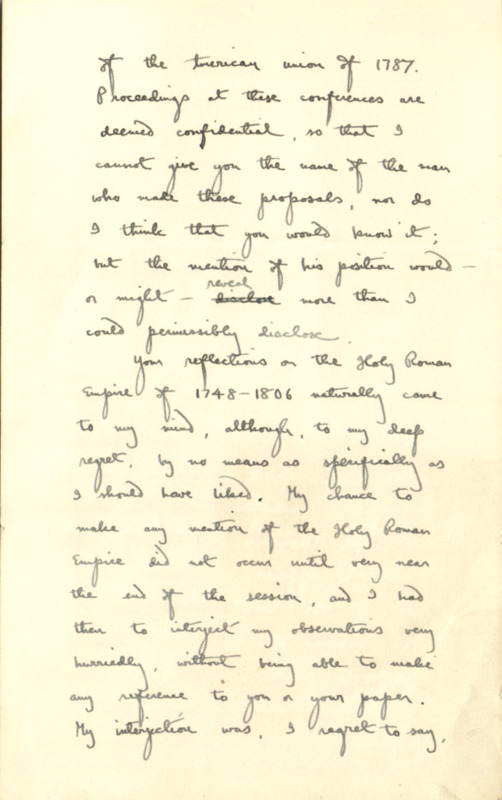 of the American union of 1787.
Proceedings at these conferences are
deemed confidential, so that I
cannot give you the name of the man
who make these proposals, nor do
I think that you would know it;
but the mention of his position would —
reveal
or might — disclose more than I
could permissibly disclose.
Your reflections on the Holy Roman
Empire of 1748–1806 naturally came
to my mind, although, to my deep
regret, by no means as specifically as
I should have liked. My chance to
make any mention of the Holy Roman
Empire did not occur until very near
the end of the session, and I had
then to interject my observations very
hurriedly, without being able to make
any reference to you or your paper.
My interjection was, I regret to say,